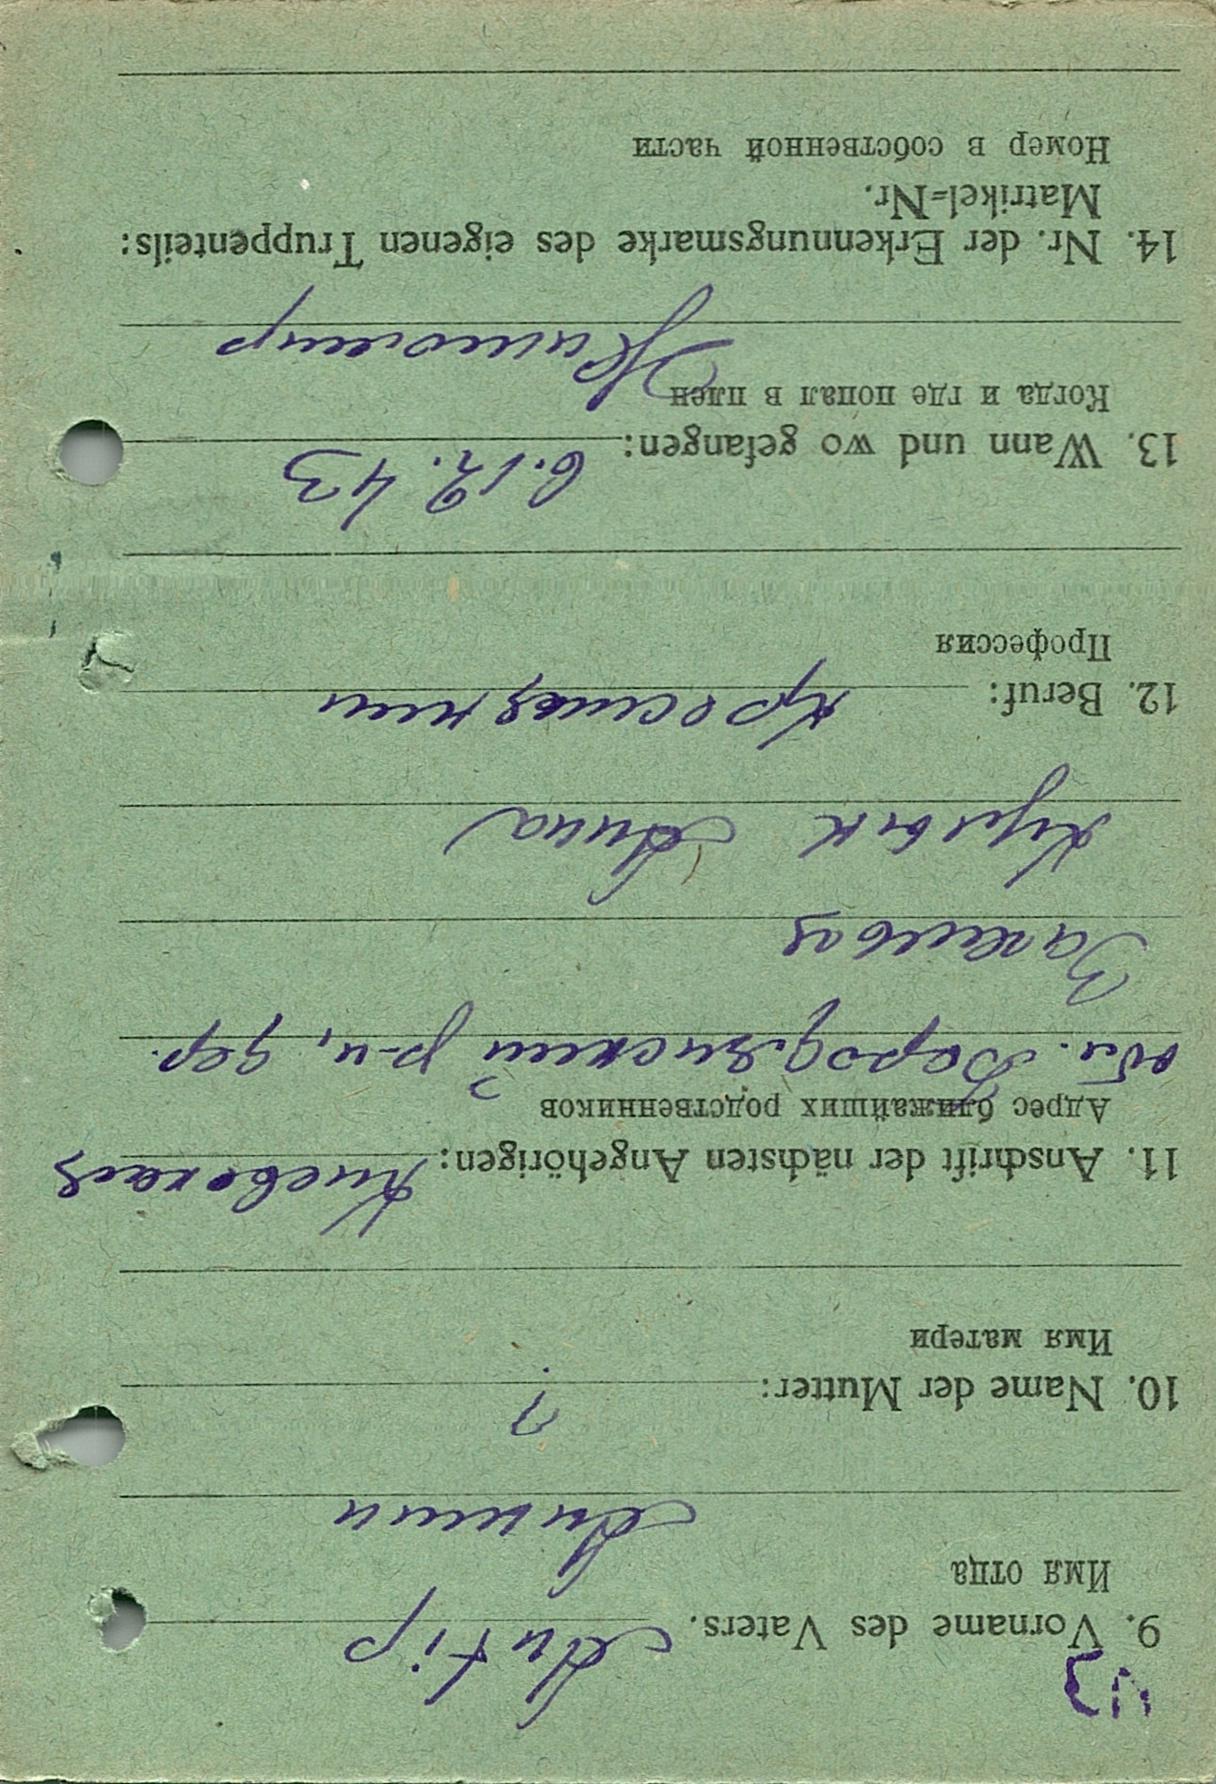 9. Vorname des Vaters.
Имя отца
10. Name der Mutter: ?
Имя матери
11. Anschrift der nächsten Angehörigen: Киевская
Адрес ближайших родственников
обл. Бородянский р-н, дер.
Кулык Анна
12. Beruf: крестьянин
Профессия
13. Wann und wo gefangen: 6.12.43
Когда и где попал в плен
Житомир
14. Nr. der Erkennungsmarke des eigenen Truppenteils:
Matrikel=Nr.
Номер в собственной части